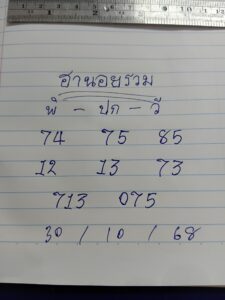 ฮานอยรวม
พิ - ปก - วี
74 75 85
12 13 73
713 075
30 / 10 / 68